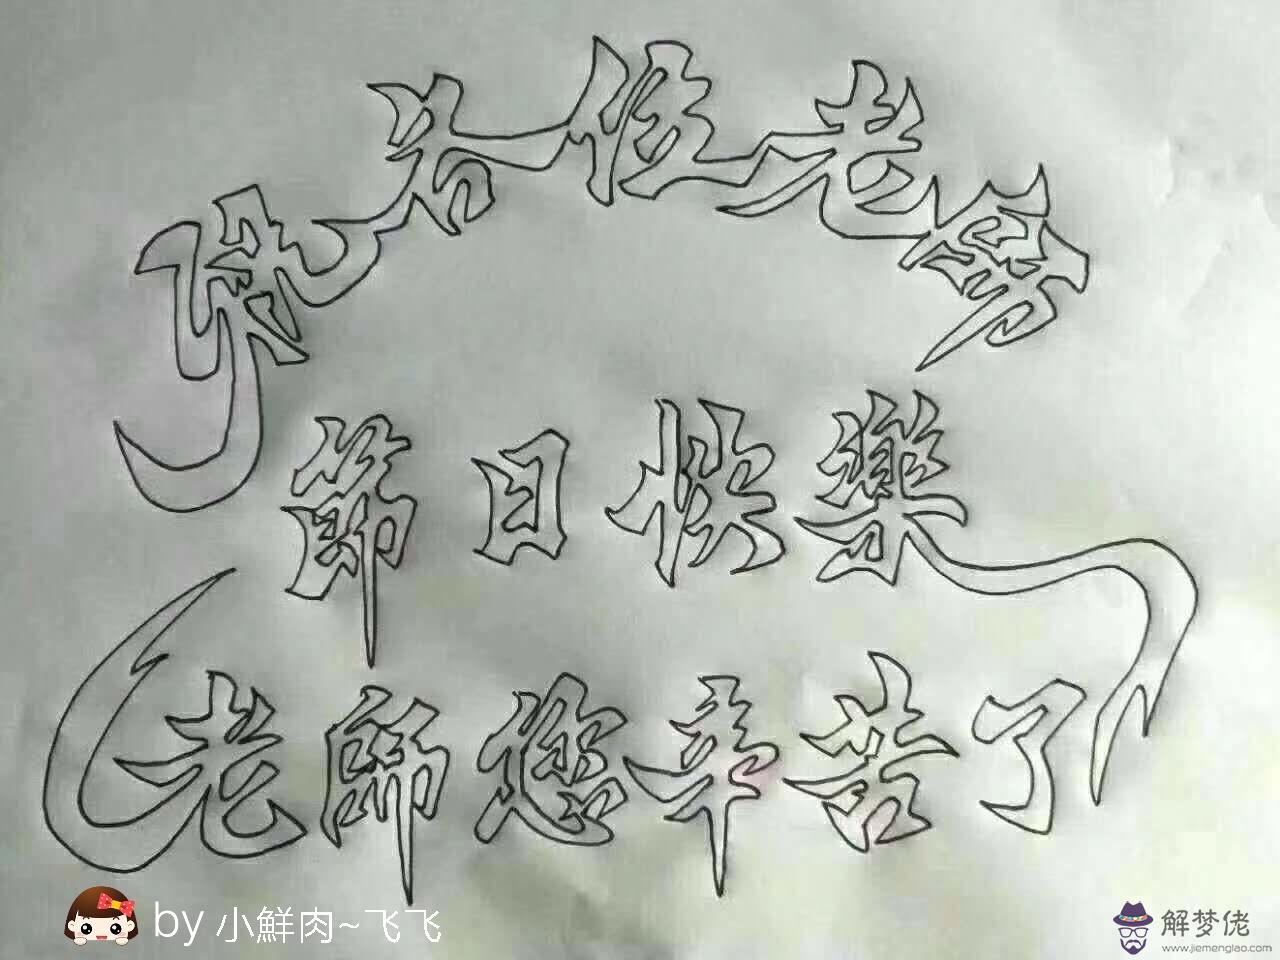 祝各位老
節日快樂
老師您辛苦了
by 小鮮肉~飞飞
解梦佬
www.jiemenglao.com